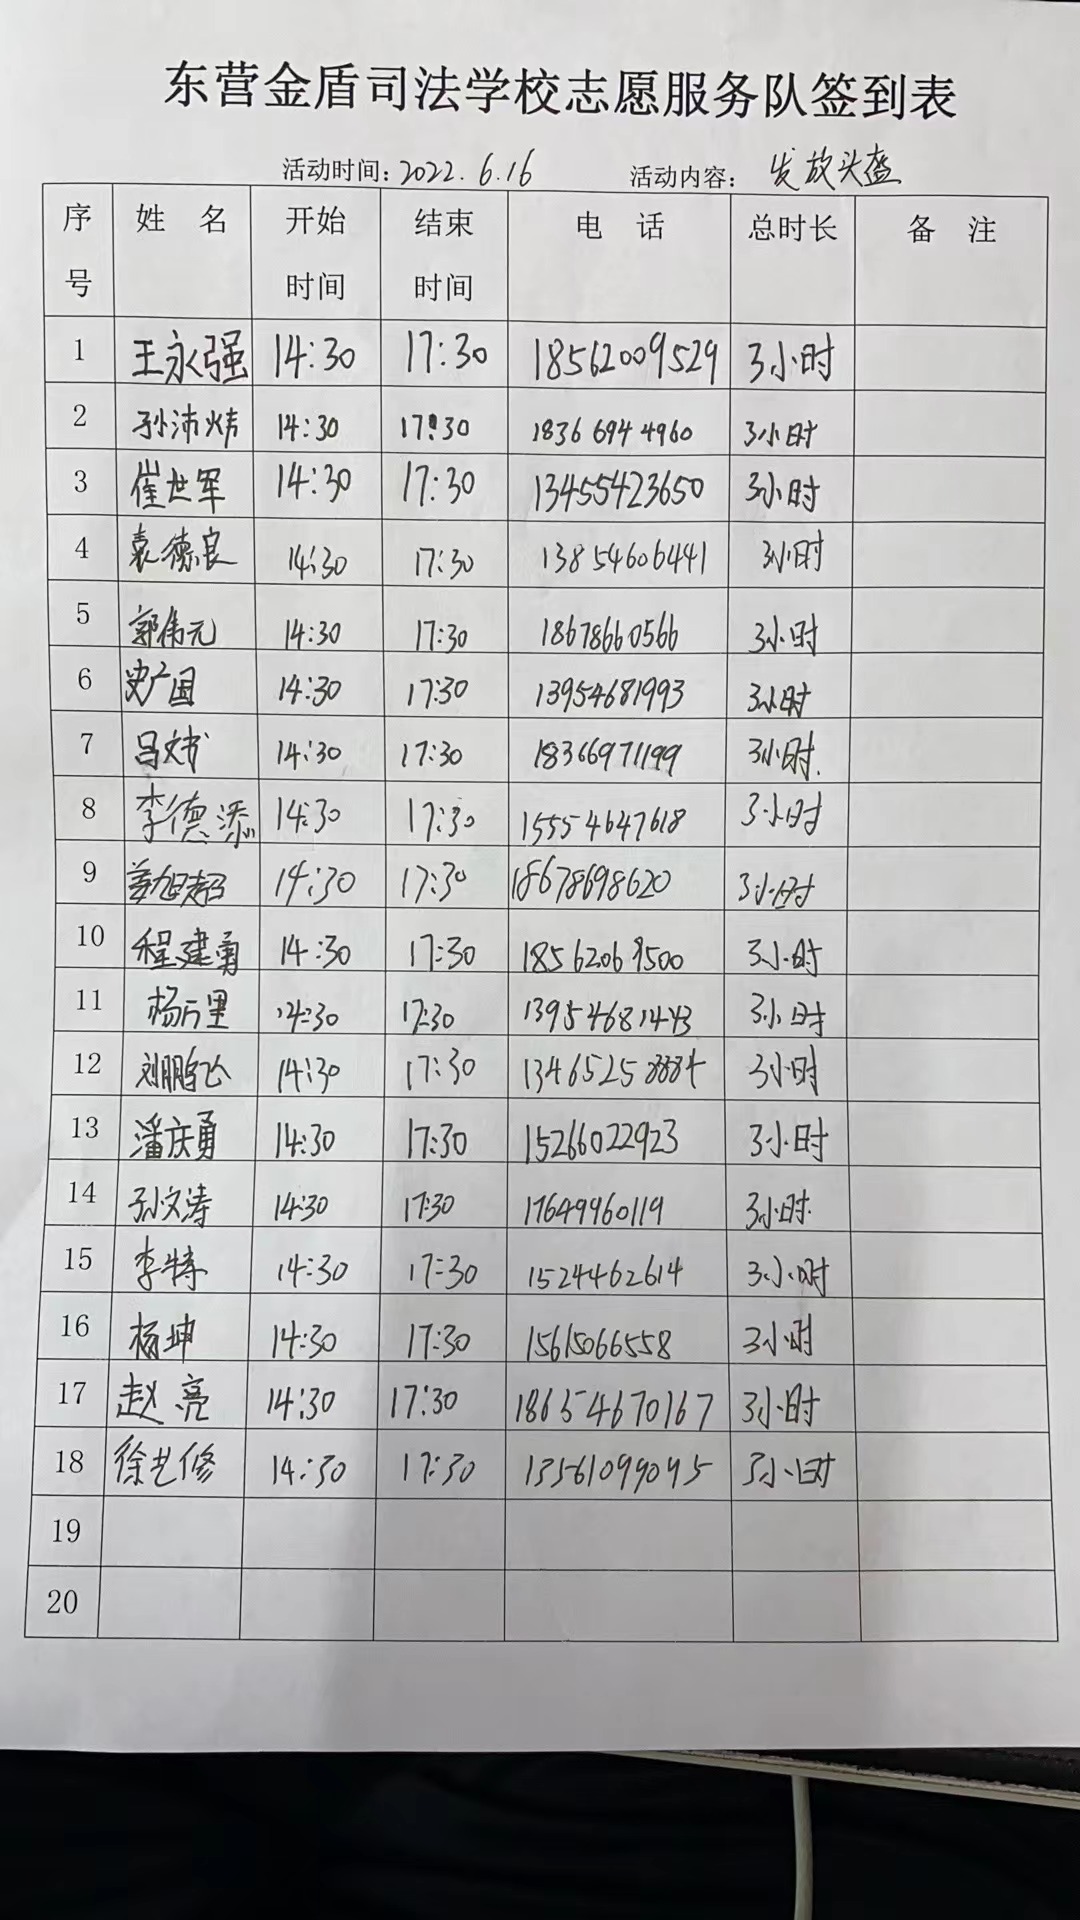 东营金盾司法学校志愿服务队签到表
活动时间：2022.6.16 活动内容：发放头盔
序号 姓 名 开始时间 结束时间 电 话 总时长 备 注
1 王永强 14:30 17:30 18562009529 3小时
2 孙沛炜 14:30 17:30 18366944960 3小时
3 崔世军 14:30 17:30 13455423650 3小时
4 袁德良 14:30 17:30 13854606441 3小时
5 郭伟元 14:30 17:30 18678660566 3小时
6 史广国 14:30 17:30 13954681993 3小时
7 吕文武 14:30 17:30 18366971199 3小时.
8 李德添 14:30 17:30 15554647618 3小时
9 姜旭超 14:30 17:30 18678698620 3小时
10 程建勇 14:30 17:30 3小时
11 杨万里 14:30 17:30 13954681443 3小时
12 刘鹏飞 14:30 17:30 13465258884 3小时
13 潘庆勇 14:30 17:30 15266022923 3小时
14 孙文涛 14:30 17:30 17649960119 3小时.
15 李特 14:30 17:30 1524462614 3小时
16 杨坤 14:30 17:30 15615066558 3小时
17 赵亮 14:30 17:30 18654670167 3小时
18 徐艺修 14:30 17:30 13561099095 3小时
19
20